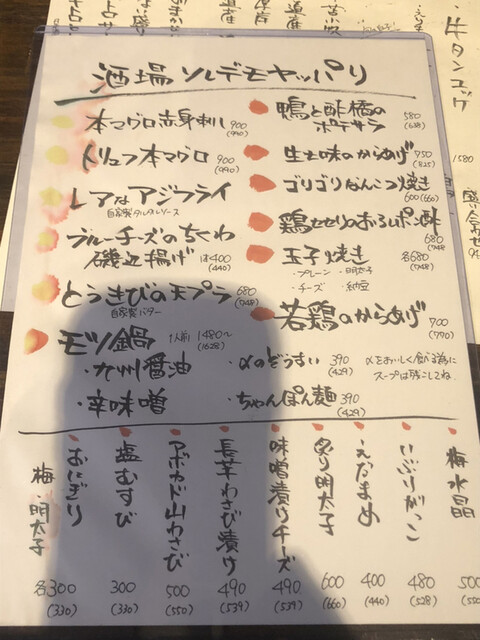 酒場ソレデモヤッパリ
本マグロ赤身刺し 900
(990)
トリュフ本マグロ 900
(990)
レアなアジフライ
自家製タルタルソース
ブルーチーズのちくわ
磯辺揚げ 1本400
(440)
とうきびの天プラ 680
(748)
自家製バター
モツ鍋 1人前 1480〜
(1628)
・九州醤油
・辛味噌
鴨と酢橘の
ポテサラ 580
(638)
生七味のからあげ 750
(825)
ゴリゴリなんこつ焼き
600(660)
鶏セセリのおろしポン酢
680
(748)
玉子焼き 各680
(748)
・プレーン ・明太子
・チーズ ・納豆
若鶏のからあげ 700
(770)
・〆のぞうすい 390
(429)
・ちゃんぽん麺 390
(429)
〆をおいしく食べる為に
スープは残こしてね。
梅水晶 500
いぶりがっこ 480
(528)
えだまめ 400
(440)
炙り明太子 600
(660)
味噌漬けチーズ 490
(539)
長芋わさび漬け 490
(539)
アボカド山わさび 500
(550)
塩むすび 300
(330)
おにぎり
梅・明太子 各300
(330)
牛タンユッケ
1580